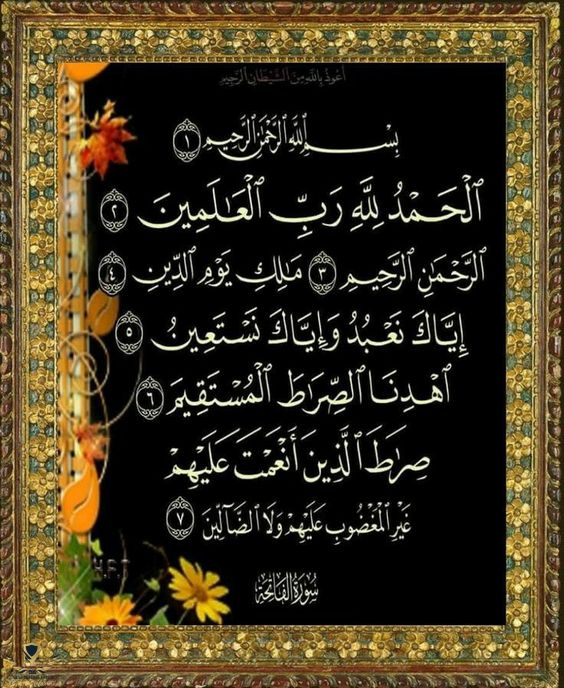 أعوذ بالله من الشيطان الرجيم
بِسْمِ ٱللَّهِ ٱلرَّحْمَٰنِ ٱلرَّحِيمِ ١
ٱلْحَمْدُ لِلَّهِ رَبِّ ٱلْعَٰلَمِينَ ٢
ٱلرَّحْمَٰنِ ٱلرَّحِيمِ ٣ مَٰلِكِ يَوْمِ ٱلدِّينِ ٤
إِيَّاكَ نَعْبُدُ وَإِيَّاكَ نَسْتَعِينُ ٥
ٱهْدِنَا ٱلصِّرَٰطَ ٱلْمُسْتَقِيمَ ٦
صِرَٰطَ ٱلَّذِينَ أَنْعَمْتَ عَلَيْهِمْ
غَيْرِ ٱلْمَغْضُوبِ عَلَيْهِمْ وَلَا ٱلضَّآلِّينَ ٧
سُورَةُ ٱلْفَاتِحَةِ